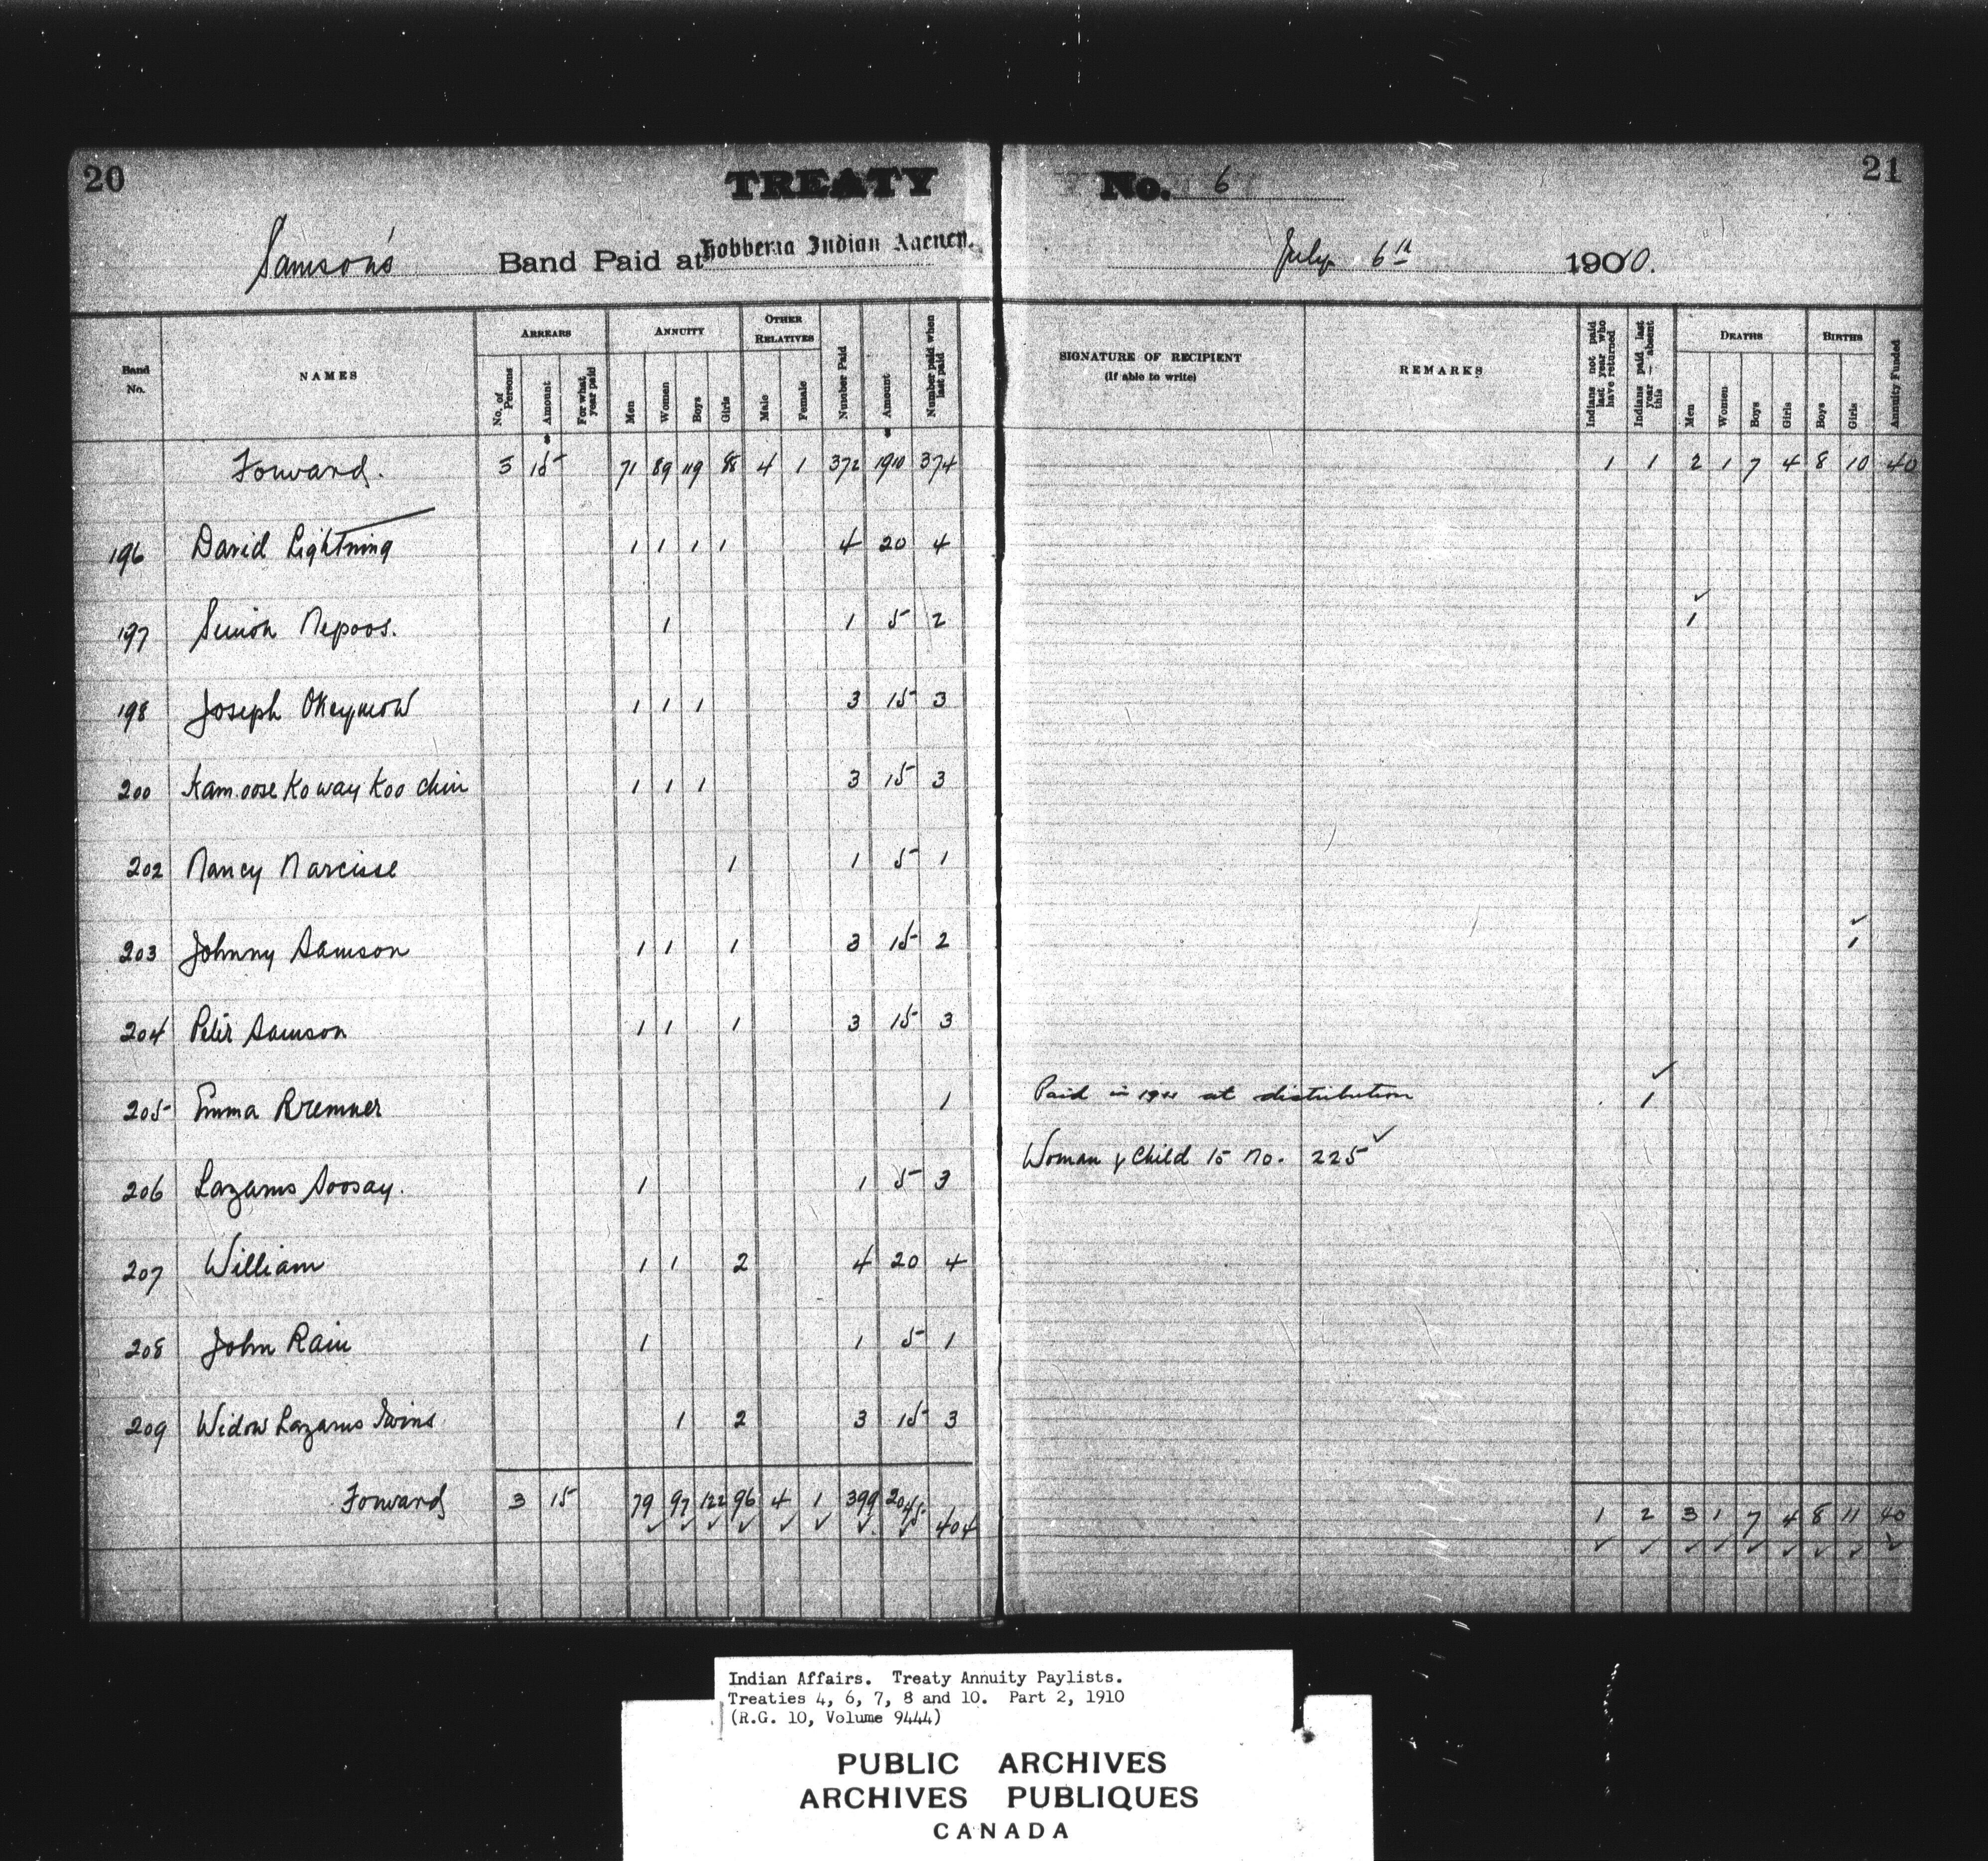 20 TREATY No. 6 21
Samson's Band Paid at Hobbema Indian Agency. July 6th 1900 10.
Band No. NAMES ARREARS ANNUITY OTHER RELATIVES Number Paid Amount Number paid when last paid SIGNATURE OF RECIPIENT (If able to write) REMARKS Indians not paid last year who have returned Indians paid last year — absent this DEATHS BIRTHS Annuity Funded
No. of Persons Amount For what year paid Men Women Boys Girls Male Female Men Women Boys Girls Boys Girls
Forward. 3 15 71 89 119 88 4 1 372 1910 374 1 1 2 1 7 4 8 10 40
196 David Lightning 1 1 1 1 4 20 4
197 Simon Nepoos. 1 1 5 2 1
198 Joseph Okeymow 1 1 1 3 15 3
200 Kam oose Ko way Koo chin 1 1 1 3 15 3
202 Nancy Narcisse 1 1 5 1
203 Johnny Samson 1 1 1 3 15 2 1
204 Peter Samson 1 1 1 3 15 3
205 Emma Bremner 1 Paid in at distribution 1
206 Lazarus Soosay. 1 1 5 3 Woman & Child to No. 225
207 William 1 1 2 4 20 4
208 John Rain 1 1 5 1
209 Widow Lazarus Swins 1 2 3 15 3
Forward 3 15 79 97 122 96 4 1 399 2045. 404 1 2 3 1 7 4 8 11 40
Indian Affairs. Treaty Annuity Paylists.
Treaties 4, 6, 7, 8 and 10. Part 2, 1910
(R.G. 10, Volume 9444)
PUBLIC ARCHIVES
ARCHIVES PUBLIQUES
CANADA